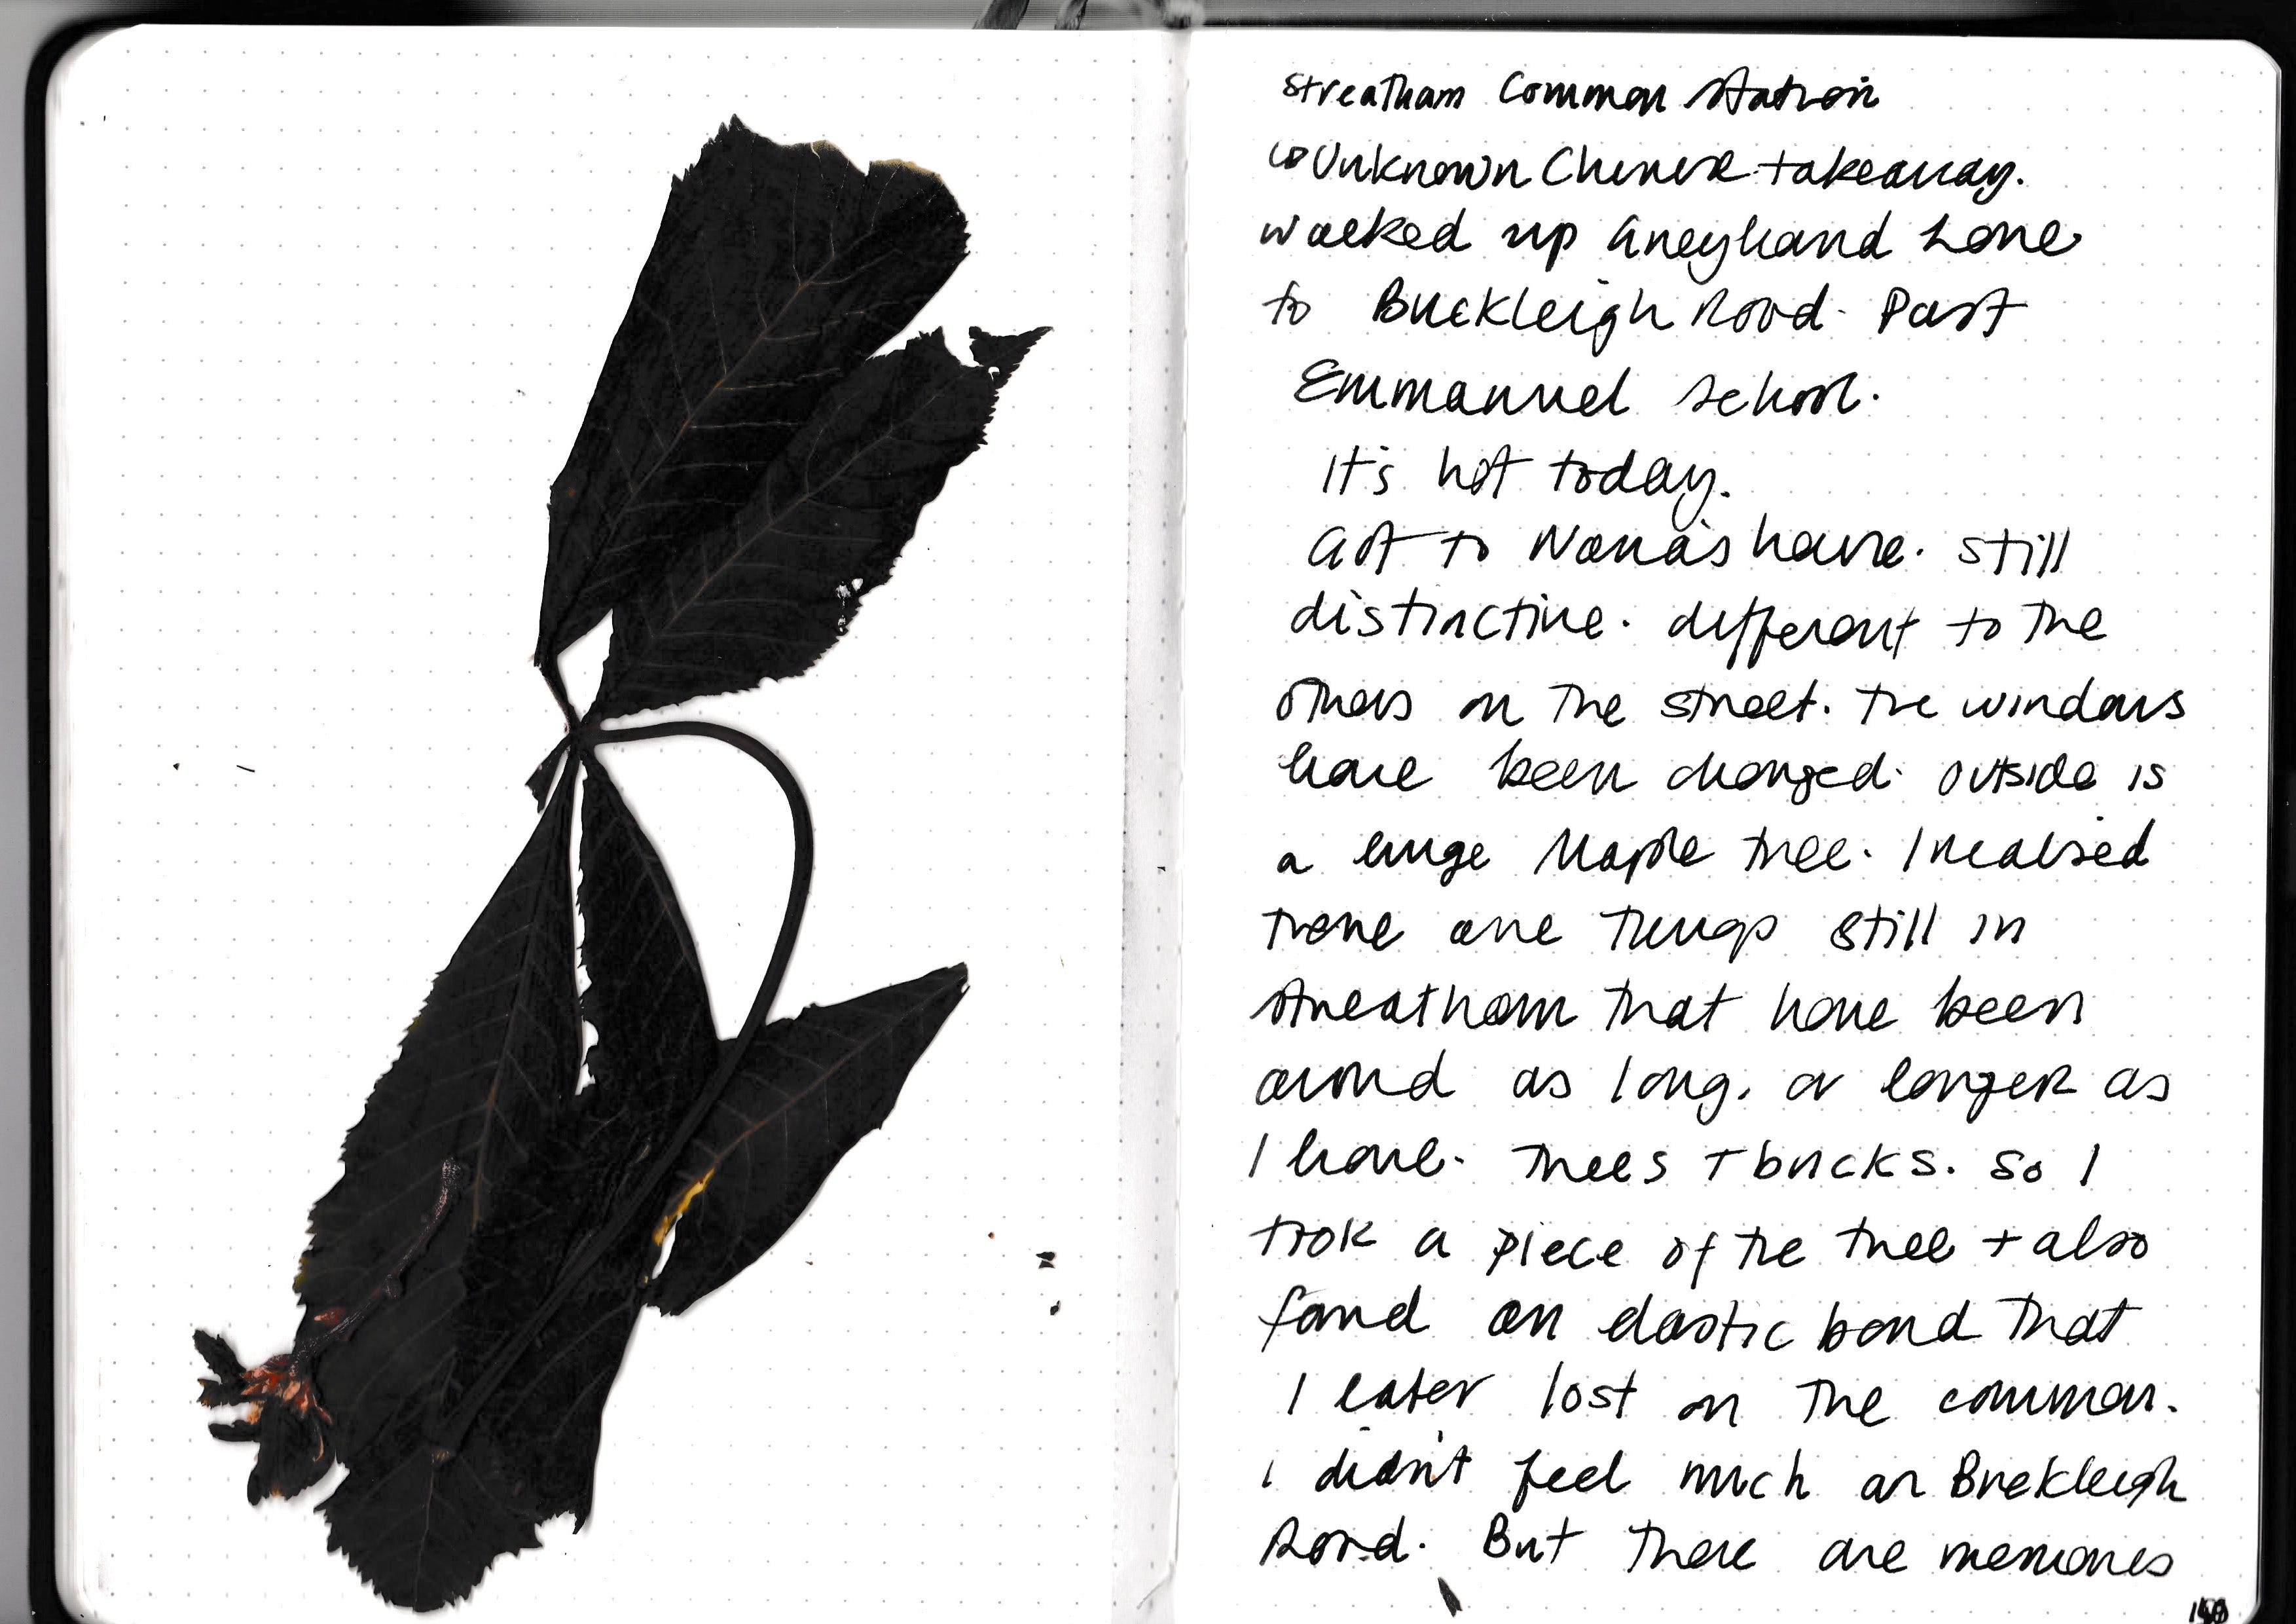 Streatham Common Station
↳ Unknown Chinese takeaway.
walked up Greyhand Lane
to Buckleigh Road. Past
Emmanuel School.
It's hot today.
Got to Nana's house. Still
distinctive. different to the
others on the street. The windows
have been changed. outside is
a huge Maple tree. I realised
there are things still in
Streatham that have been
around as long, or longer as
I have. Trees + bricks. So I
took a piece of the tree + also
found an elastic band that
I later lost on the common.
I didn't feel much on Buckleigh
Road. But there are memories